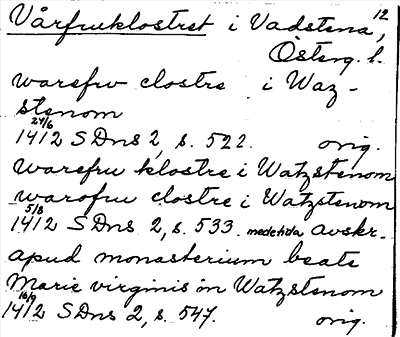 12
Vårfruklostret i Vadstena,
Österg. l.
warefrv clostre i Waz-
stenom
24/6
1412 SDns 2, s. 522. orig.
warefru klostre i Watzstenom
warofru clostre i Watzstenom
5/8
1412 SDns 2, s. 533. medeltida avskr.
apud monasterium beate
Marie virginis in Watzstenom
16/9
1412 SDns 2, s. 547. orig.